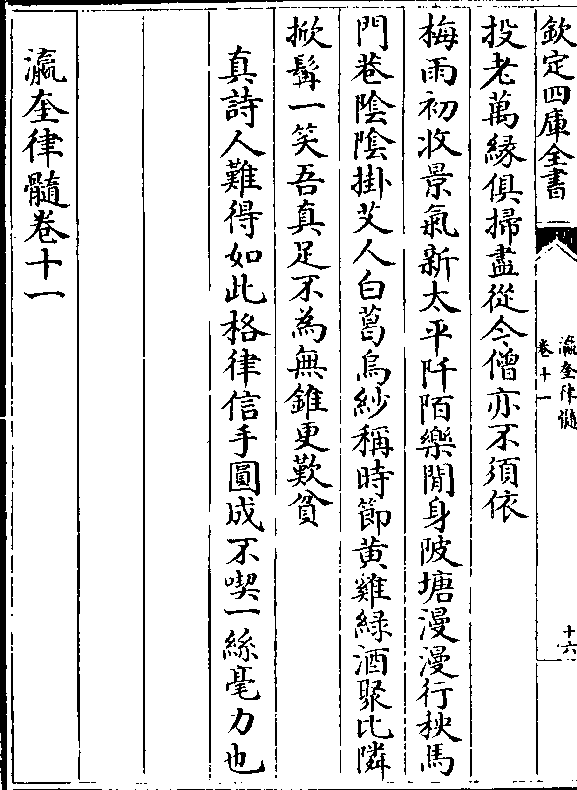 欽定四庫全書
瀛奎律髓
卷十一
十六
投老萬緣俱掃盡從今僧亦不須依
梅雨初收景氣新太平阡陌樂閒身陂塘漫漫行秧馬
門巷陰陰掛艾人白葛烏紗稱時節黄雞緑酒聚比隣
掀髯一笑吾真足不為無錐更歎貧
真詩人難得如此格律信手圓成不喫一絲毫力也
瀛奎律髓卷十一